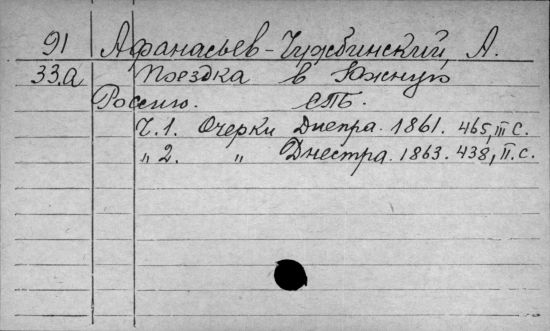 91 Афанасьев-Чужбинский А.
33.а Поездка в Южную
Россию. СПБ.
Ч.1. Очерки Днепра. 1861. 465, III с.
„ 2. „ Днестра. 1863. 438, II. с.